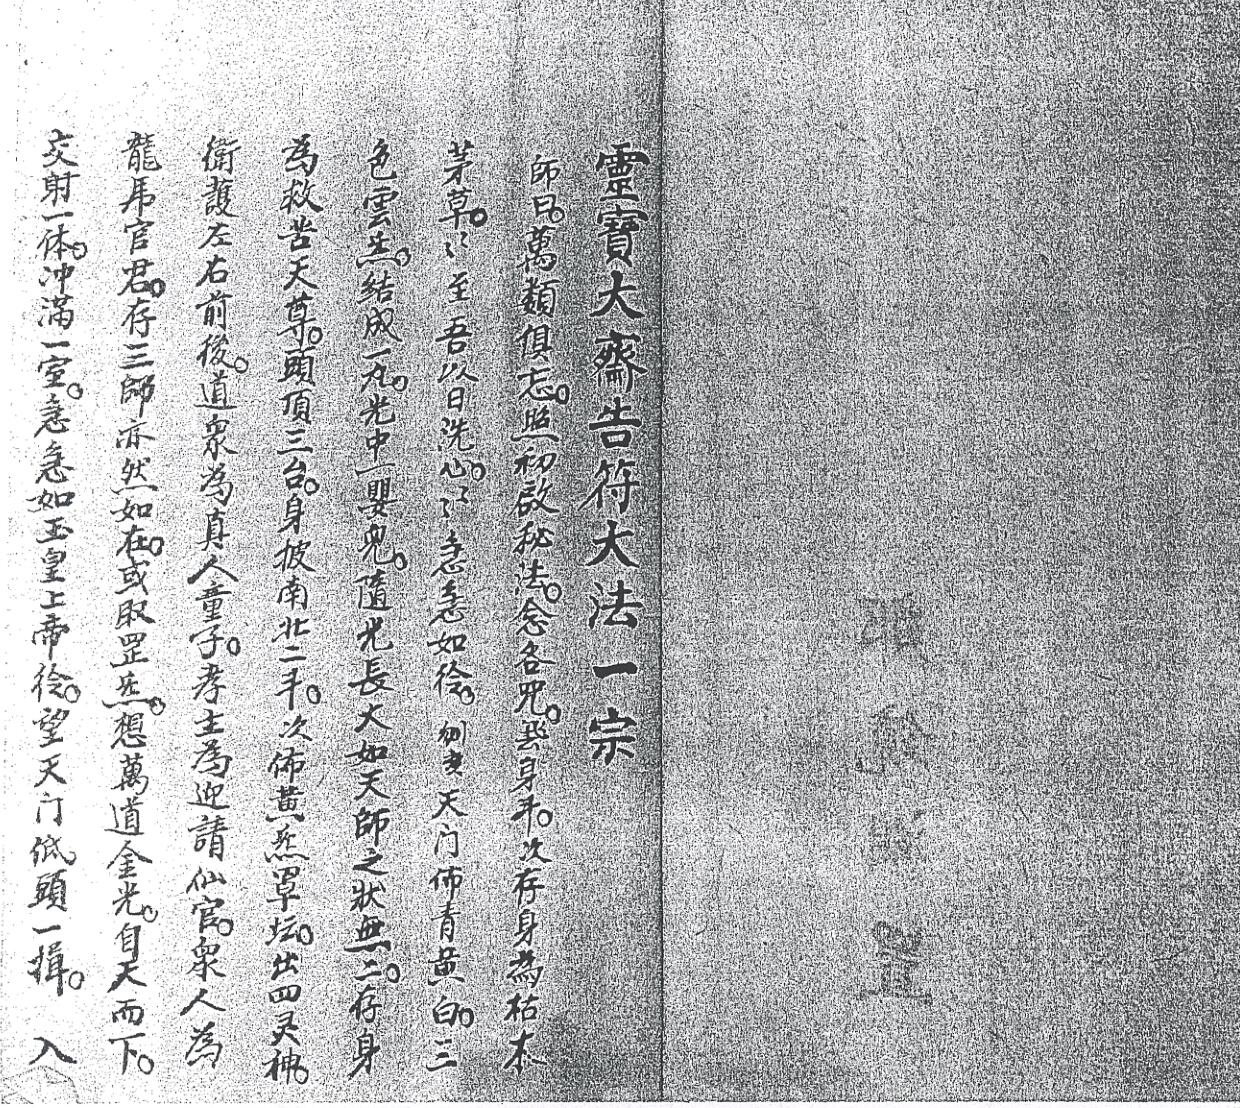 靈寶大齋告符大法一宗
師曰。萬類俱忘。照初啟秘法。念各咒。身斗。次存身為枯木
茅草。〻至吾以日洗心。〻急急如徐。天门佈青黃白。三
色雲炁。結成一丸。光中一嬰兒。隨光長大如天師之狀無二。存身
為救苦天尊。頭頂三台。身披南北二斗。次佈黃炁罩坛。出四灵神。
衛護左右前後。道衆為真人童子。孝主為迎請仙官。衆人為
龍虎官君。存三師亦然如在。或取罡炁。想萬道金光。自天而下。
交射一体。冲滿一室。急急如玉皇上帝徐。望天门低頭一揖。入